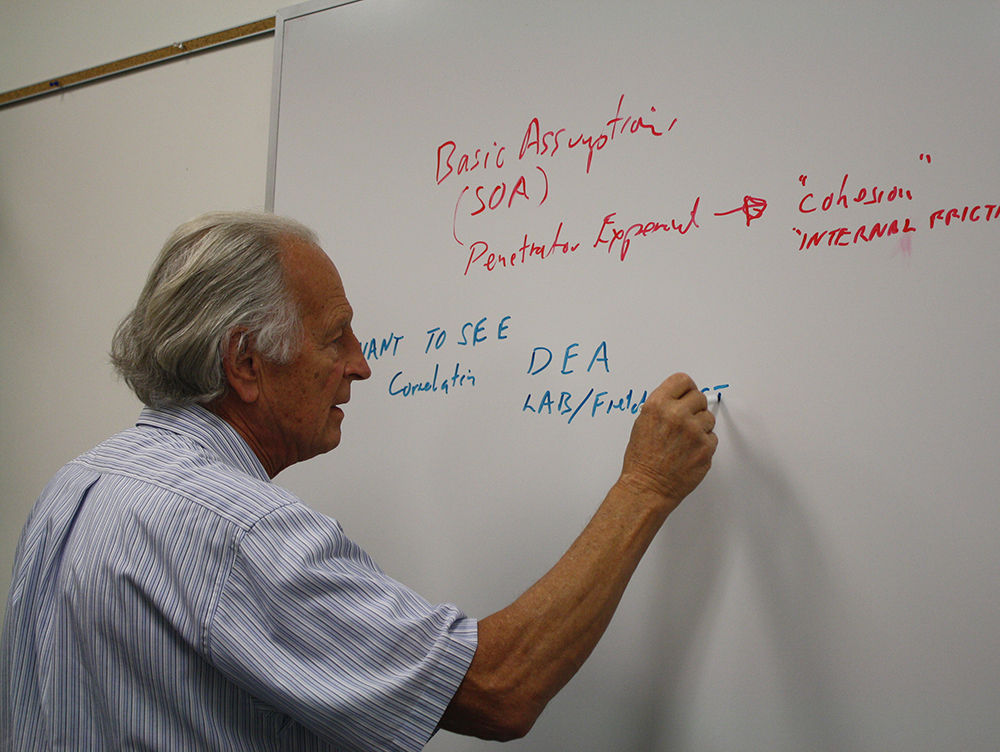 Basic Assumption,
(SOA)
Penetrator Experiment → "Cohesion"
"INTERNAL FRICTI
WANT TO SEE
Correlatin
DEA
LAB/Field